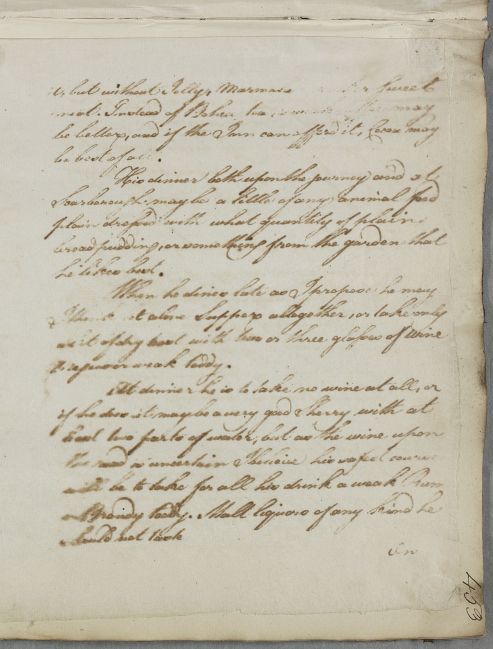 it, but without Jelly, Marma Sweet
meat. Instead of Bohea, tea may
be better, and if the Inn can afford it, Cocoa may
be best of all.
His dinner both upon the journey and at
Scarborough may be a little of any animal food
plain dressed with what quantity of plain
bread pudding, or something from the garden that
he likes best.
When he dines late as I propose he may
I think let alone Supper altogether, or take only
a bit of dry with two or three glasses of wine
negus or weak toddy.
At dinner he is to take no wine at all, or
if he does it may be a very good Sherry with at
least two parts of water, but as the wine upon
the road is uncertain I believe his safest course
will be to take for all his drink a weak Rum
or Brandy toddy. Malt liquors of any kind he
should not taste
On
433